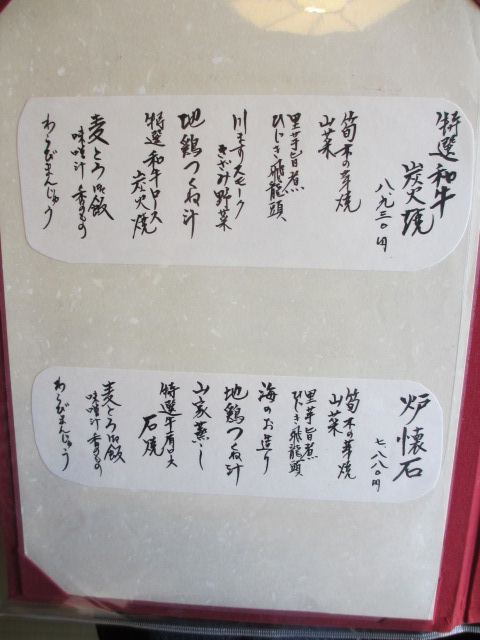 特選和牛
炭火焼
八、九三〇円
筍木の芽焼
山菜
里芋旨煮
ひじき飛龍頭
川エリスモーク
きざみ野菜
地鶏つくね汁
特選和牛ロース
炭火焼
麦とろ御飯
味噌汁 香のもの
わらびまんじゅう
炉懐石
七、八八〇円
筍木の芽焼
山菜
里芋旨煮
ひじき飛龍頭
海のお造り
地鶏つくね汁
山家蒸し
特選牛肩口大
石焼
麦とろ御飯
味噌汁 香のもの
わらびまんじゅう